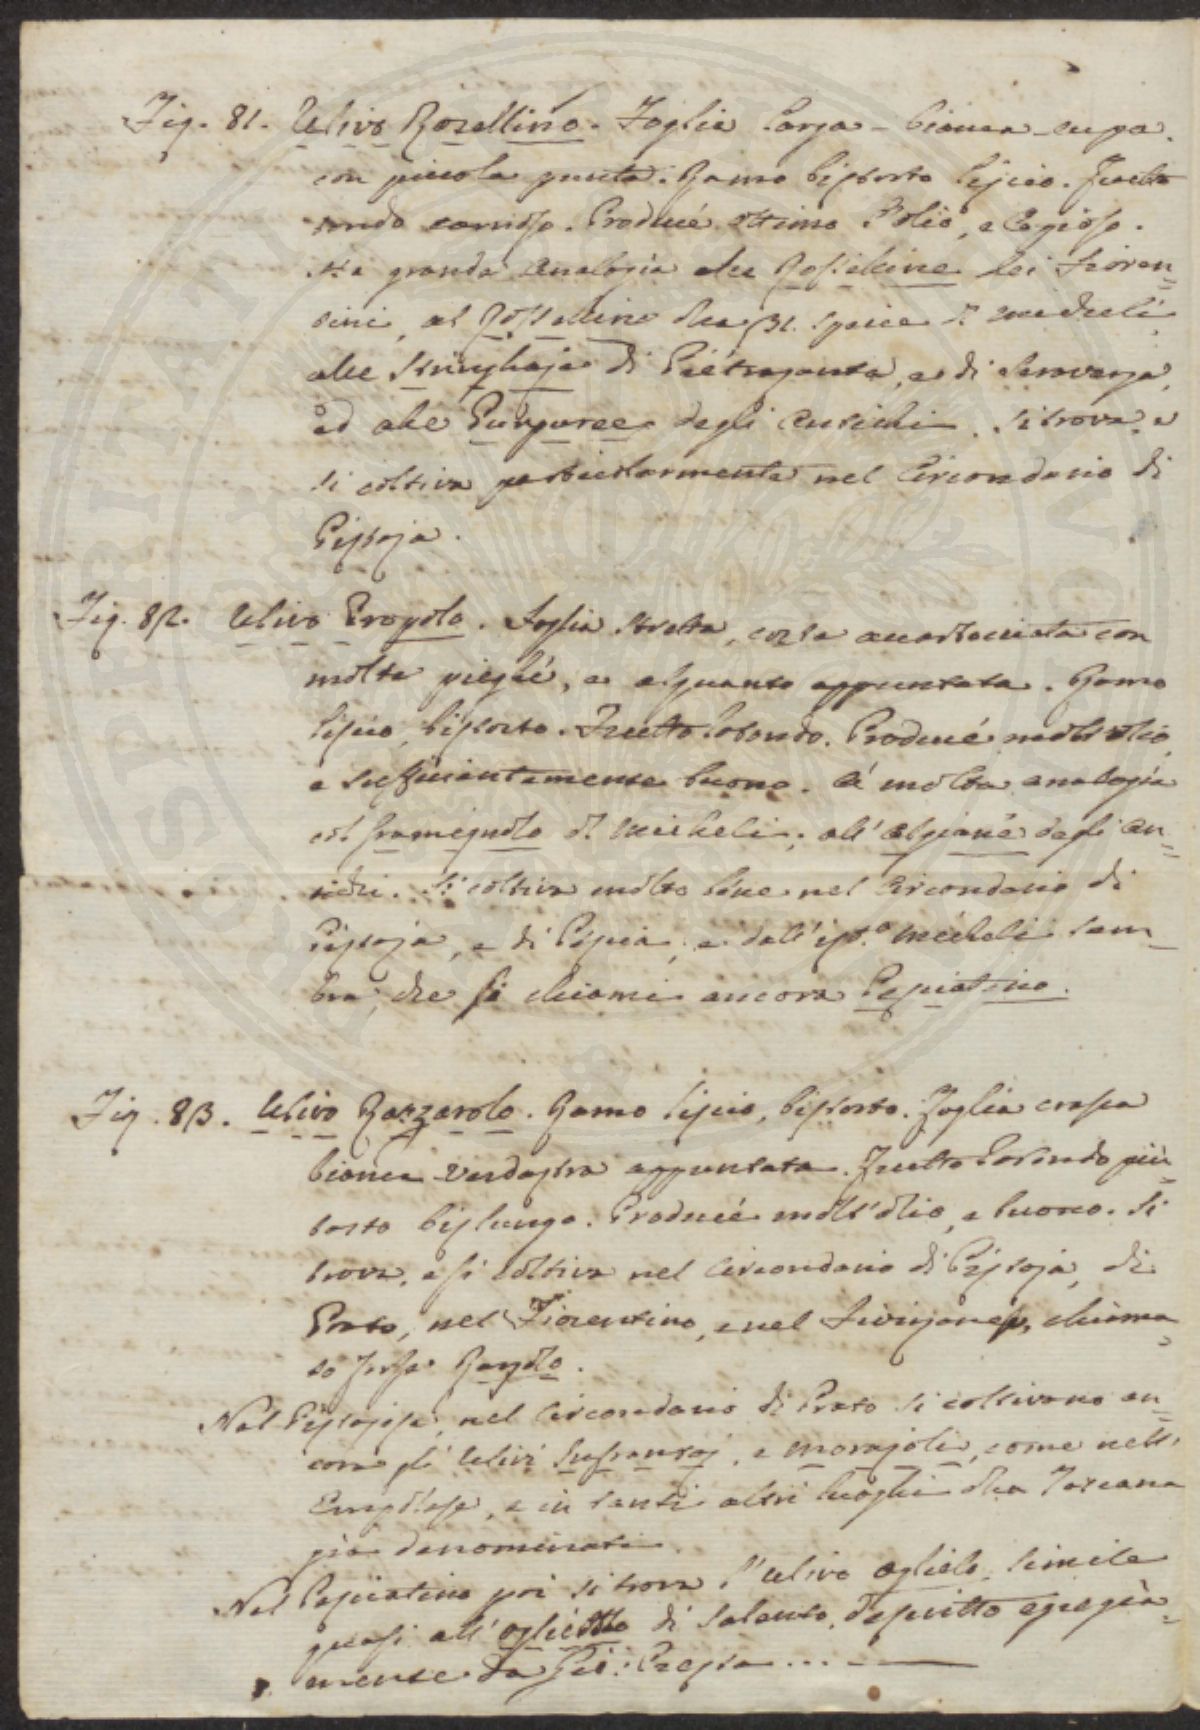 Fig. 81. Ulivo Rozellino. Foglia larga - bianca - cupa.
con piccola punta. Ramo bistorto liscio. Frutto
tondo carnoso. Produce ottimo l'olio, e copioso.
Ha grande analogia alle Rosselline dei Fioren=
tini, al Rossellino della 31. specie di Micheli,
alle Stringhaja di Pietrasanta, e di Seravezza,
ed alle Purpuree degli Antichi. Si trova, e
si coltiva particolarmente nel Circondario di
Pistoja.
Fig. 82. Ulivo Progolo. Foglia stretta, corta accartocciata con
molte pieghe, e alquanto appuntata. Ramo
liscio, bistorto. Frutto rotondo. Produce molt'olio,
e sufficientemente buono. À molta analogia
col framignolo di Micheli, all'Algiane degli An=
tichi. Si coltiva molto bene nel Circondario di
Pistoja, e di Pescia, e dall'ist.o Micheli sem=
bra, che si chiami ancora Pesciatino.
Fig. 83. Ulivo Razzarolo. Ramo liscio, bistorto. Foglia crassa
bianca verdastra appuntata. Frutto rotondo piu=
tosto bislungo. Produce molt'olio, e buono. Si
trova, e si coltiva nel Circondario di Pistoja, di
Prato, nel Fiorentino, e nel chiama=
to forse Razzolo.
Nel Pistojese, nel Circondario di Prato si coltivano an=
cora gl'Ulivi Infrantoj, e Morajoli, come nell'
Empolese, e in tanti altri luoghi della Toscana
già denominati.
Nel Pesciatino poi si trova l'Ulivo Ogliolo, simile
quasi all'Ogliotto di Salento, descritto egregia=
mente da Gio: Presta ...